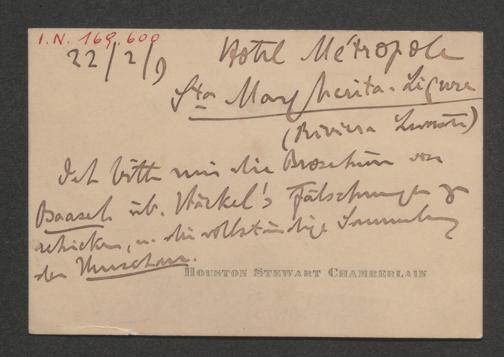 I.N. 169.600
22/2/9
Hotel Métropole
Sta Margherita-Ligure
(Riviera Levante)
Ich bitte mir die Broschüre von
Baasch üb. Häckel's Fälschungen zu
schicken, u. die vollständige Sammlung
der Umschau.
HOUSTON STEWART CHAMBERLAIN